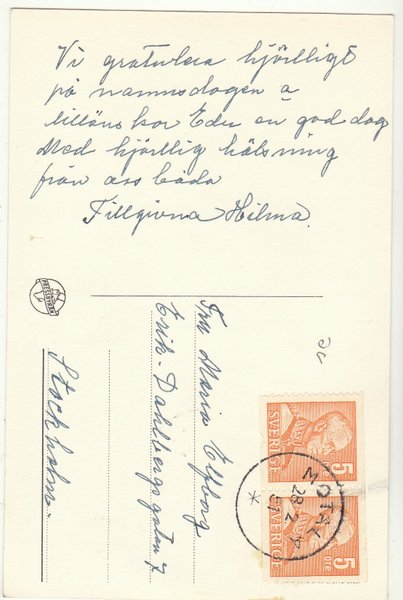 Vi gratulera hjärlligt
på namnsdagen o
tillönskar Eder en god dag
Med hjärllig hälsning
från oss båda
Tillgivna Hilma.
Fru Maria Elfborg
Erik-Dahlbergs gatan 7
Stockholm.
SVERIGE
5
ÖRE
SVERIGE
5
ÖRE
MOTALA
28 2
51